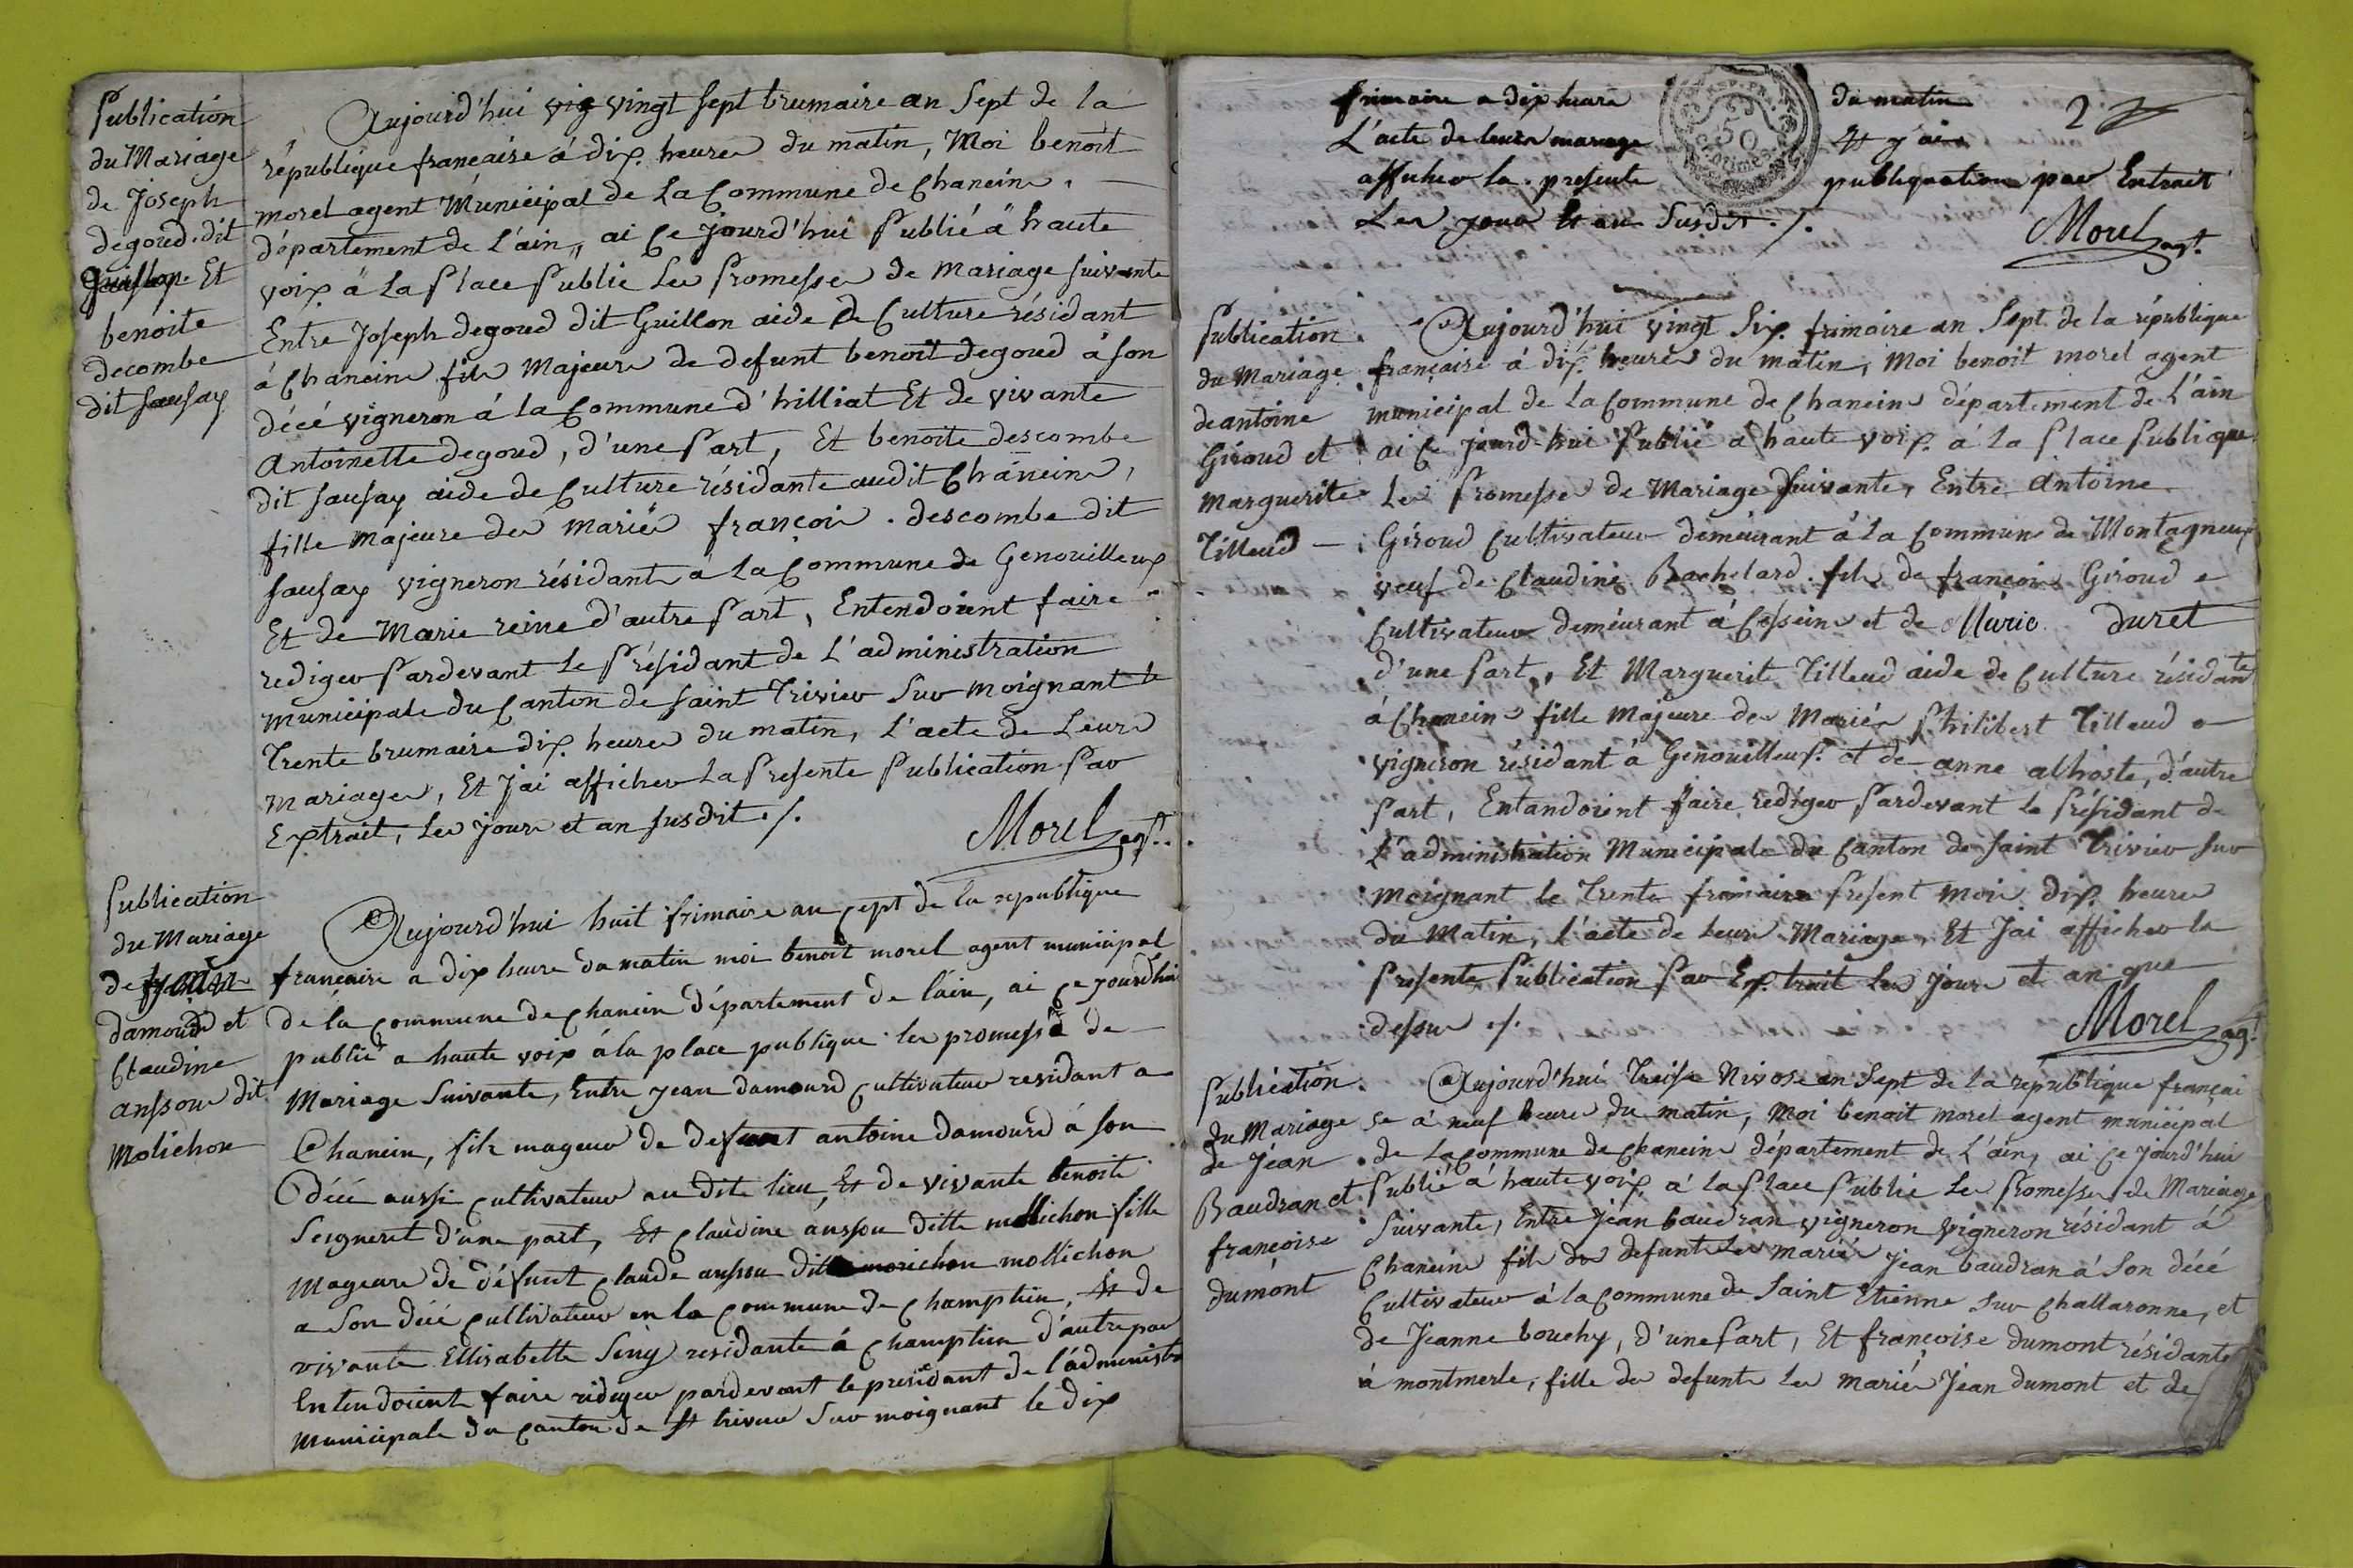 Publication
du Mariage
de Joseph
degoud dit
Guillon Et
benoite
decombe
dit sausay
Aujourd'hui vig vingt sept brumaire an Sept de la
république française á dix heures du matin, Moi benoit
morel agent Municipal de La Commune de Chaneins.
département de L'ain, ai Ce jourd'hui Publié à haute
voix à La Place Public Les Promesses de Mariage suivante
Entre Joseph degoud dit Guillon aide de Culture résidant
á Chaneins fils Majeure de defunt benoit degoud á son
décé vigneron á la Commune d'hilliat Et de vivante
Antoinette degoud, d'une Part, Et benoite descombe
dit sausay aide de Culture résidante audit Chaneins,
fille majeure des Mariés françois descombe dit
sausay vigneron résidants á La Commune de Genouilleux
Et de Marie reine d'autre Part, Entendoient faire
rediger Pardevant Le Présidant de L'administration
municipale du Canton de saint Trivier Sur moignant le
Trente brumaire dix heures du matin, L'acte de Leurs
mariages, Et J'ai afficher La Presente Publication Par
Extrait, Les jours et an susdit ./.
Morel agt.
Publication
du Mariage
de Jean
damoud et
Claudine
anssou dit
Molichon
Aujourd'hui huit frimaire an sept de la republique
francaise a dix heure du matin moi benoit morel agent municipal
de la commune de chanein département de lain, ai ce jourdhui
publié a haute voix á la place publique les promesse de
Mariage Suivante, Entre jean damourd cultivateur residant a
Chanein, fils mageur de defunt antoine damourd á son
décé aussi cultivateur au dite lieu, Et de vivante benoite
Seigneret d'une part, Et claudine anssou ditte mollichon fille
Mageure de défunt claude anssou ditte morichon mollichon
a Son décé cultivateur en la commune de champtein, Et de
vivante Ellisabette Siny residante á champtein d'autre par
Entendoient faire rediger pardevant le president de l'administra
municipale du canton de St trivier Sur moignant le dix
2
frimaire a dix heure du matin
L'acte de leurs mariage Et j'ai
afficher la presente publiquation par Extrait
Les jour Et an Susdit ./.
Morel agt.
Publication
du Mariage
de antoine
Giroud et
Marguerite
Tilleud
Aujourd'hui vingt Six frimaire an Sept de la république
française á dix heures du matin, Moi benoit morel agent
municipal de La Commune de Chaneins département de L'ain
ai Ce jourd'hui Publié á haute voix á La Place Publique
Les Promesses de Mariage Suivante, Entre Antoine
Giroud Cultivateur demeurant á La Commune de Montagneux
veuf de Claudine Bachelard fils de françois Giroud
Cultivateur demeurant á Cesseins et de Marie duret
d'une Part, Et Marguerite Tilleud aide de Culture résidante
á Chaneins fille Majeure des Mariés Philibert Tilleud
vigneron résidant á Genouilleux et de anne alhoste, d'autre
Part, Entandoient faire rediger Pardevant Le Présidant de
L'administration Municipale du Canton de saint Trivier sur
moignant le trente frimaire Présent mois dix heures
du Matin, l'acte de Leurs Mariage, Et J'ai afficher la
Presente Publication Par Extrait Les jours et an que
dessus ./.
Morel agt
Publication
du Mariage
de Jean
Baudran et
françoise
dumont
Aujourd'hui Treise Nivose an Sept de la république françai
se á neuf heures du matin, Moi benoit morel agent municipal
de La commune de Chaneins département de L'ain, ai Ce jourd'hui
Publié á haute voix á la Place Public Les Promesses de Mariage
Suivante, Entre Jean baudran vigneron vigneron résidant á
Chaneins fils des defunts Les mariés Jean baudran á Son décé
Cultivateur á la Commune de Saint Etienne sur Challaronne, et
de Jeanne bouchy, d'une Part, Et françoise dumont résidante
á montmerle, fille des defunts Les mariés Jean dumont et de